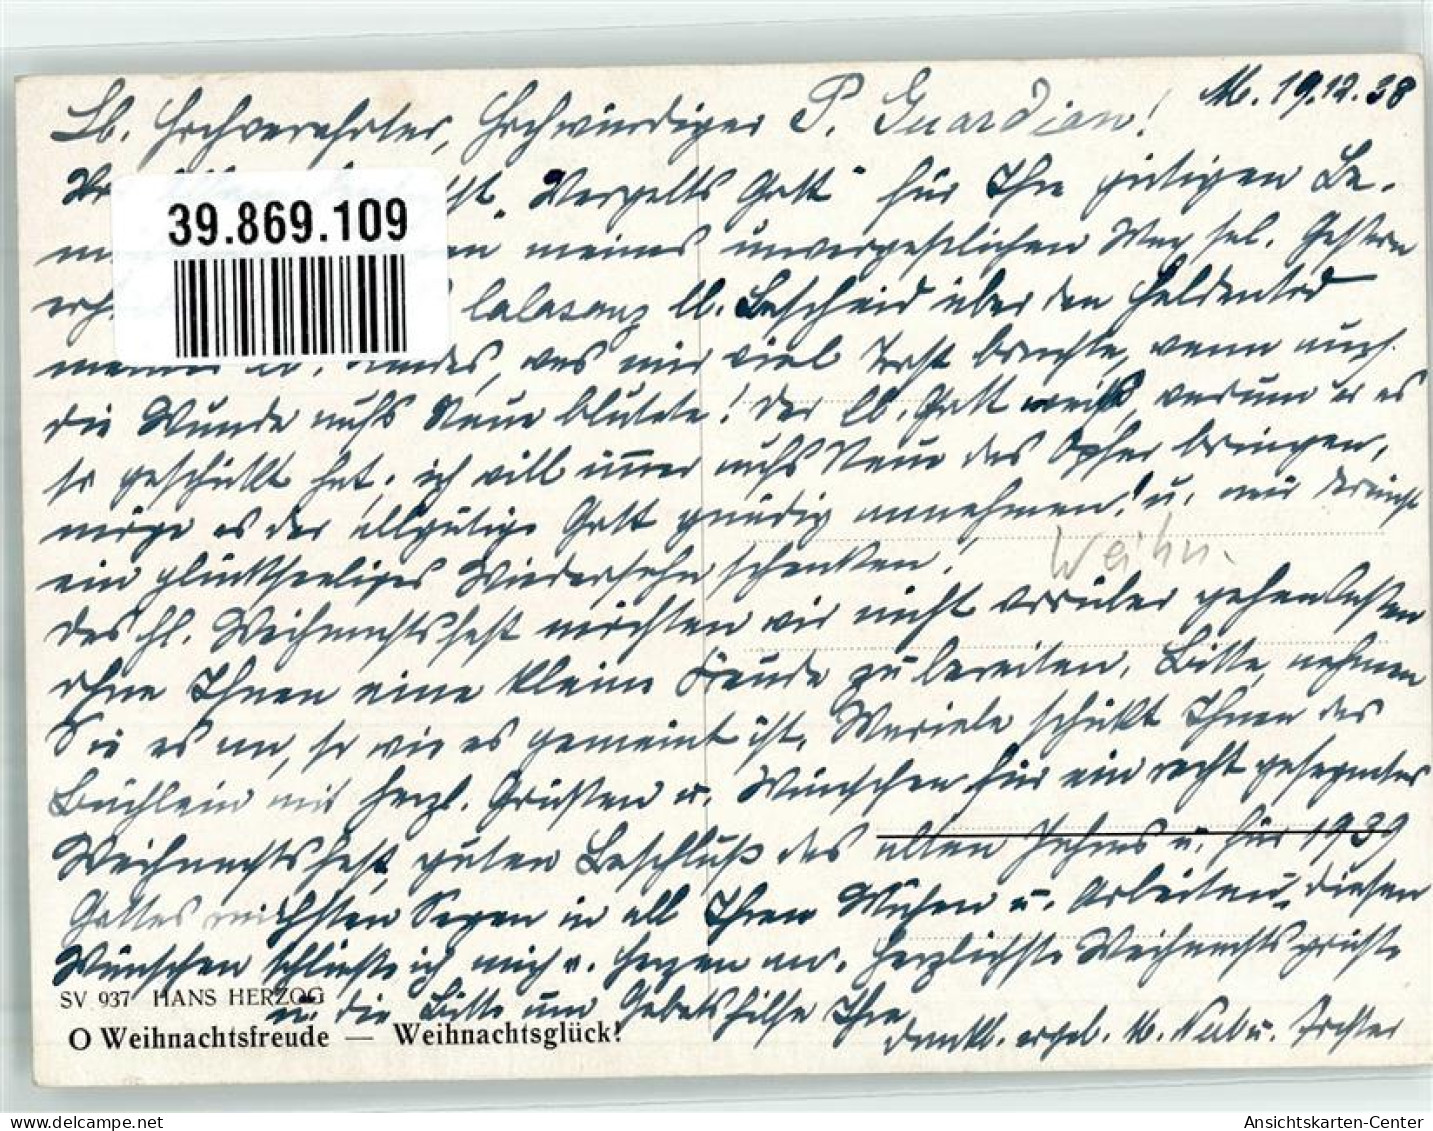 M. 19.12.38
Lb. Hochverehrter, Hochwürdiger P. Guardian!
"Vergelts Gott" für Ihre gütigen Be-
39.869.109
meines unvergeßlichen
lb. Bescheid über den Heldentod
was mir viel Trost brachte, wenn auch
die Wunde aufs Neue blutete! Der lb. Gott weiß, warum er es
so geschickt hat. ich will immer aufs Neue das Opfer bringen,
möge es der allgütige Gott gnädig annehmen! u. mir dereinst
ein glückseeliges Wiedersehn schenken!
Weihn.
Das hl. Weihnachtsfest möchten wir nicht vorüber gehen lassen
ohne Ihnen eine kleine Freude zu bereiten. Bitte, nehmen
Sie es an, so wie es gemeint ist. Mariele schickt Ihnen das
Büchlein mit herzl. Grüßen u. Wünschen für ein recht gesegnetes
Weihnachtsfest, guten Beschluß des alten Jahres u. für 1939
Gottes reichsten Segen in all Ihren Mühen u. Arbeiten. Diesen
Wünschen schließe ich mich v. Herzen an. Herzlichste Weihnachtsgrüße
SV 937 HANS HERZOG
u. die Bitte um Gebetshilfe Ihre
O Weihnachtsfreude — Weihnachtsglück!
dankb. ergeb. M. u. Tochter
Ansichtskarten-Center